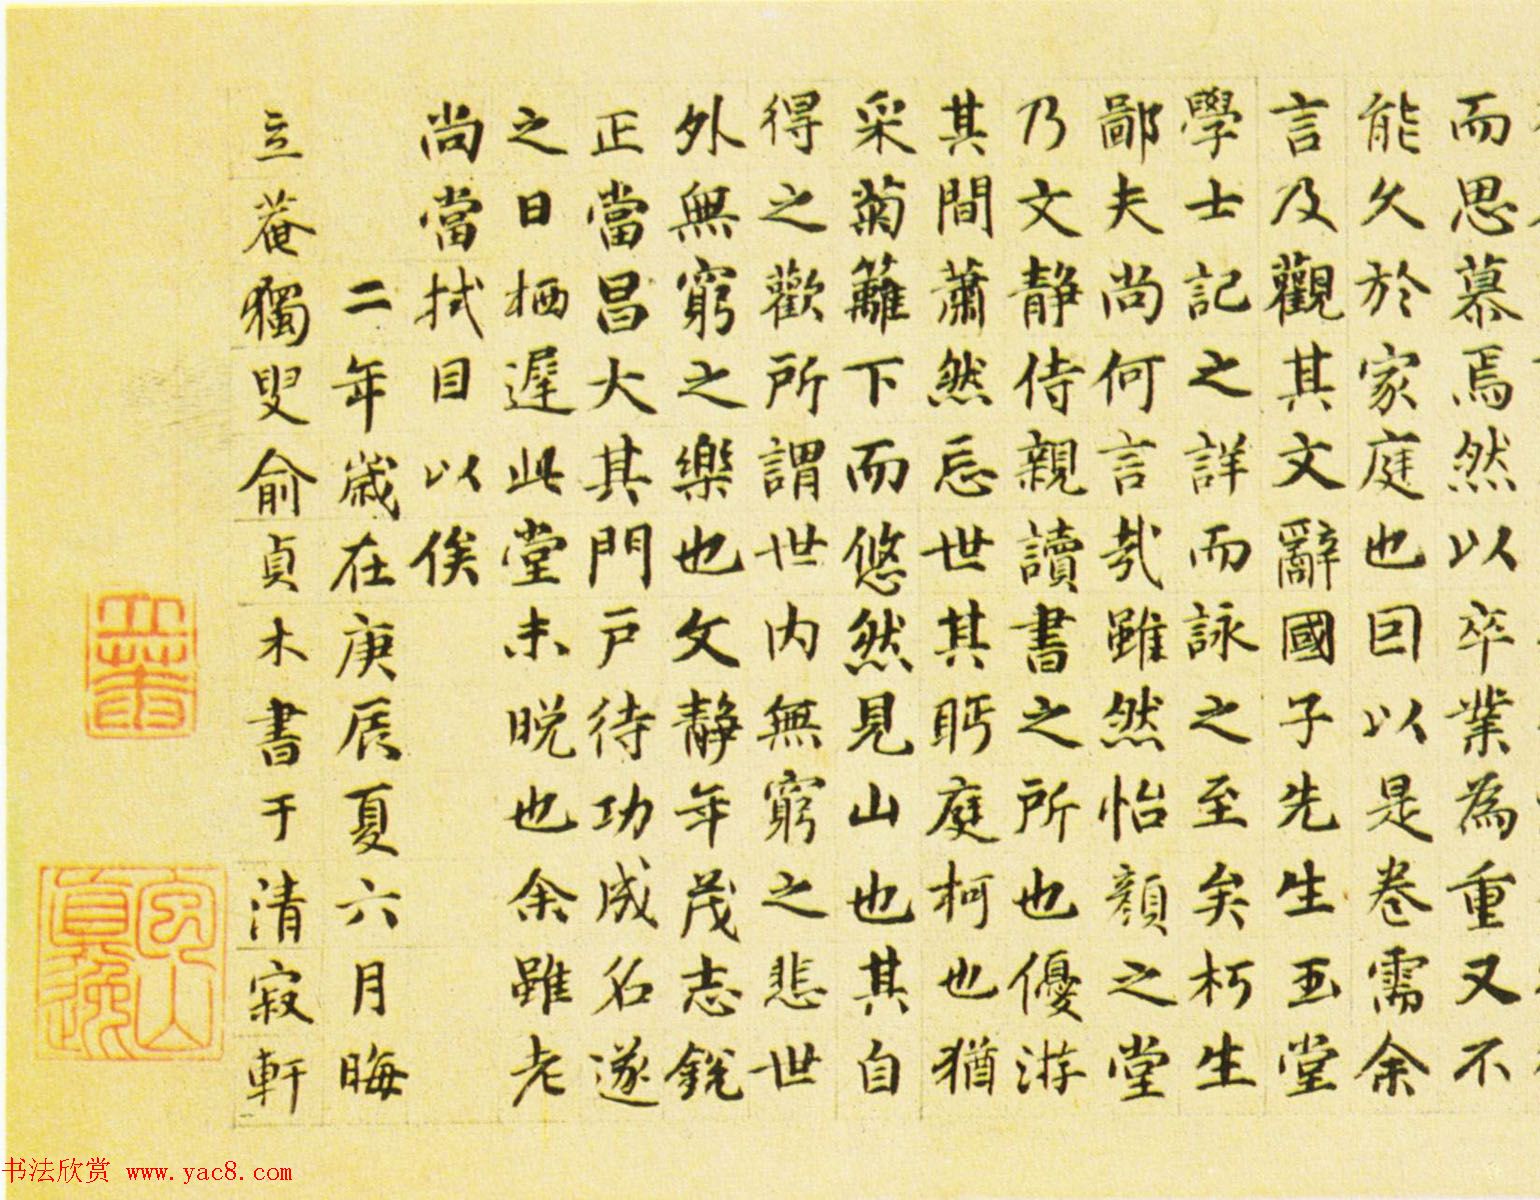 而思慕焉然以卒業為重又不
能久於家庭也囙以是卷需余
言及觀其文辭國子先生玉堂
學士記之詳而詠之至矣朽生
鄙夫尚何言哉雖然怡顔之堂
乃文静侍親讀書之所也優游
其間蕭然忘世其眄庭柯也猶
采菊籬下而悠然見山也其自
得之歡所謂世内無窮之悲世
外無窮之樂也文静年茂志銳
正當昌大其門戸待功成名遂
之日栖遲此堂未晚也余雖老
尚當拭目以俟
二年歲在庚辰夏六月晦
立菴獨叟俞貞木書于清寂軒
书法欣赏 www.yac8.com